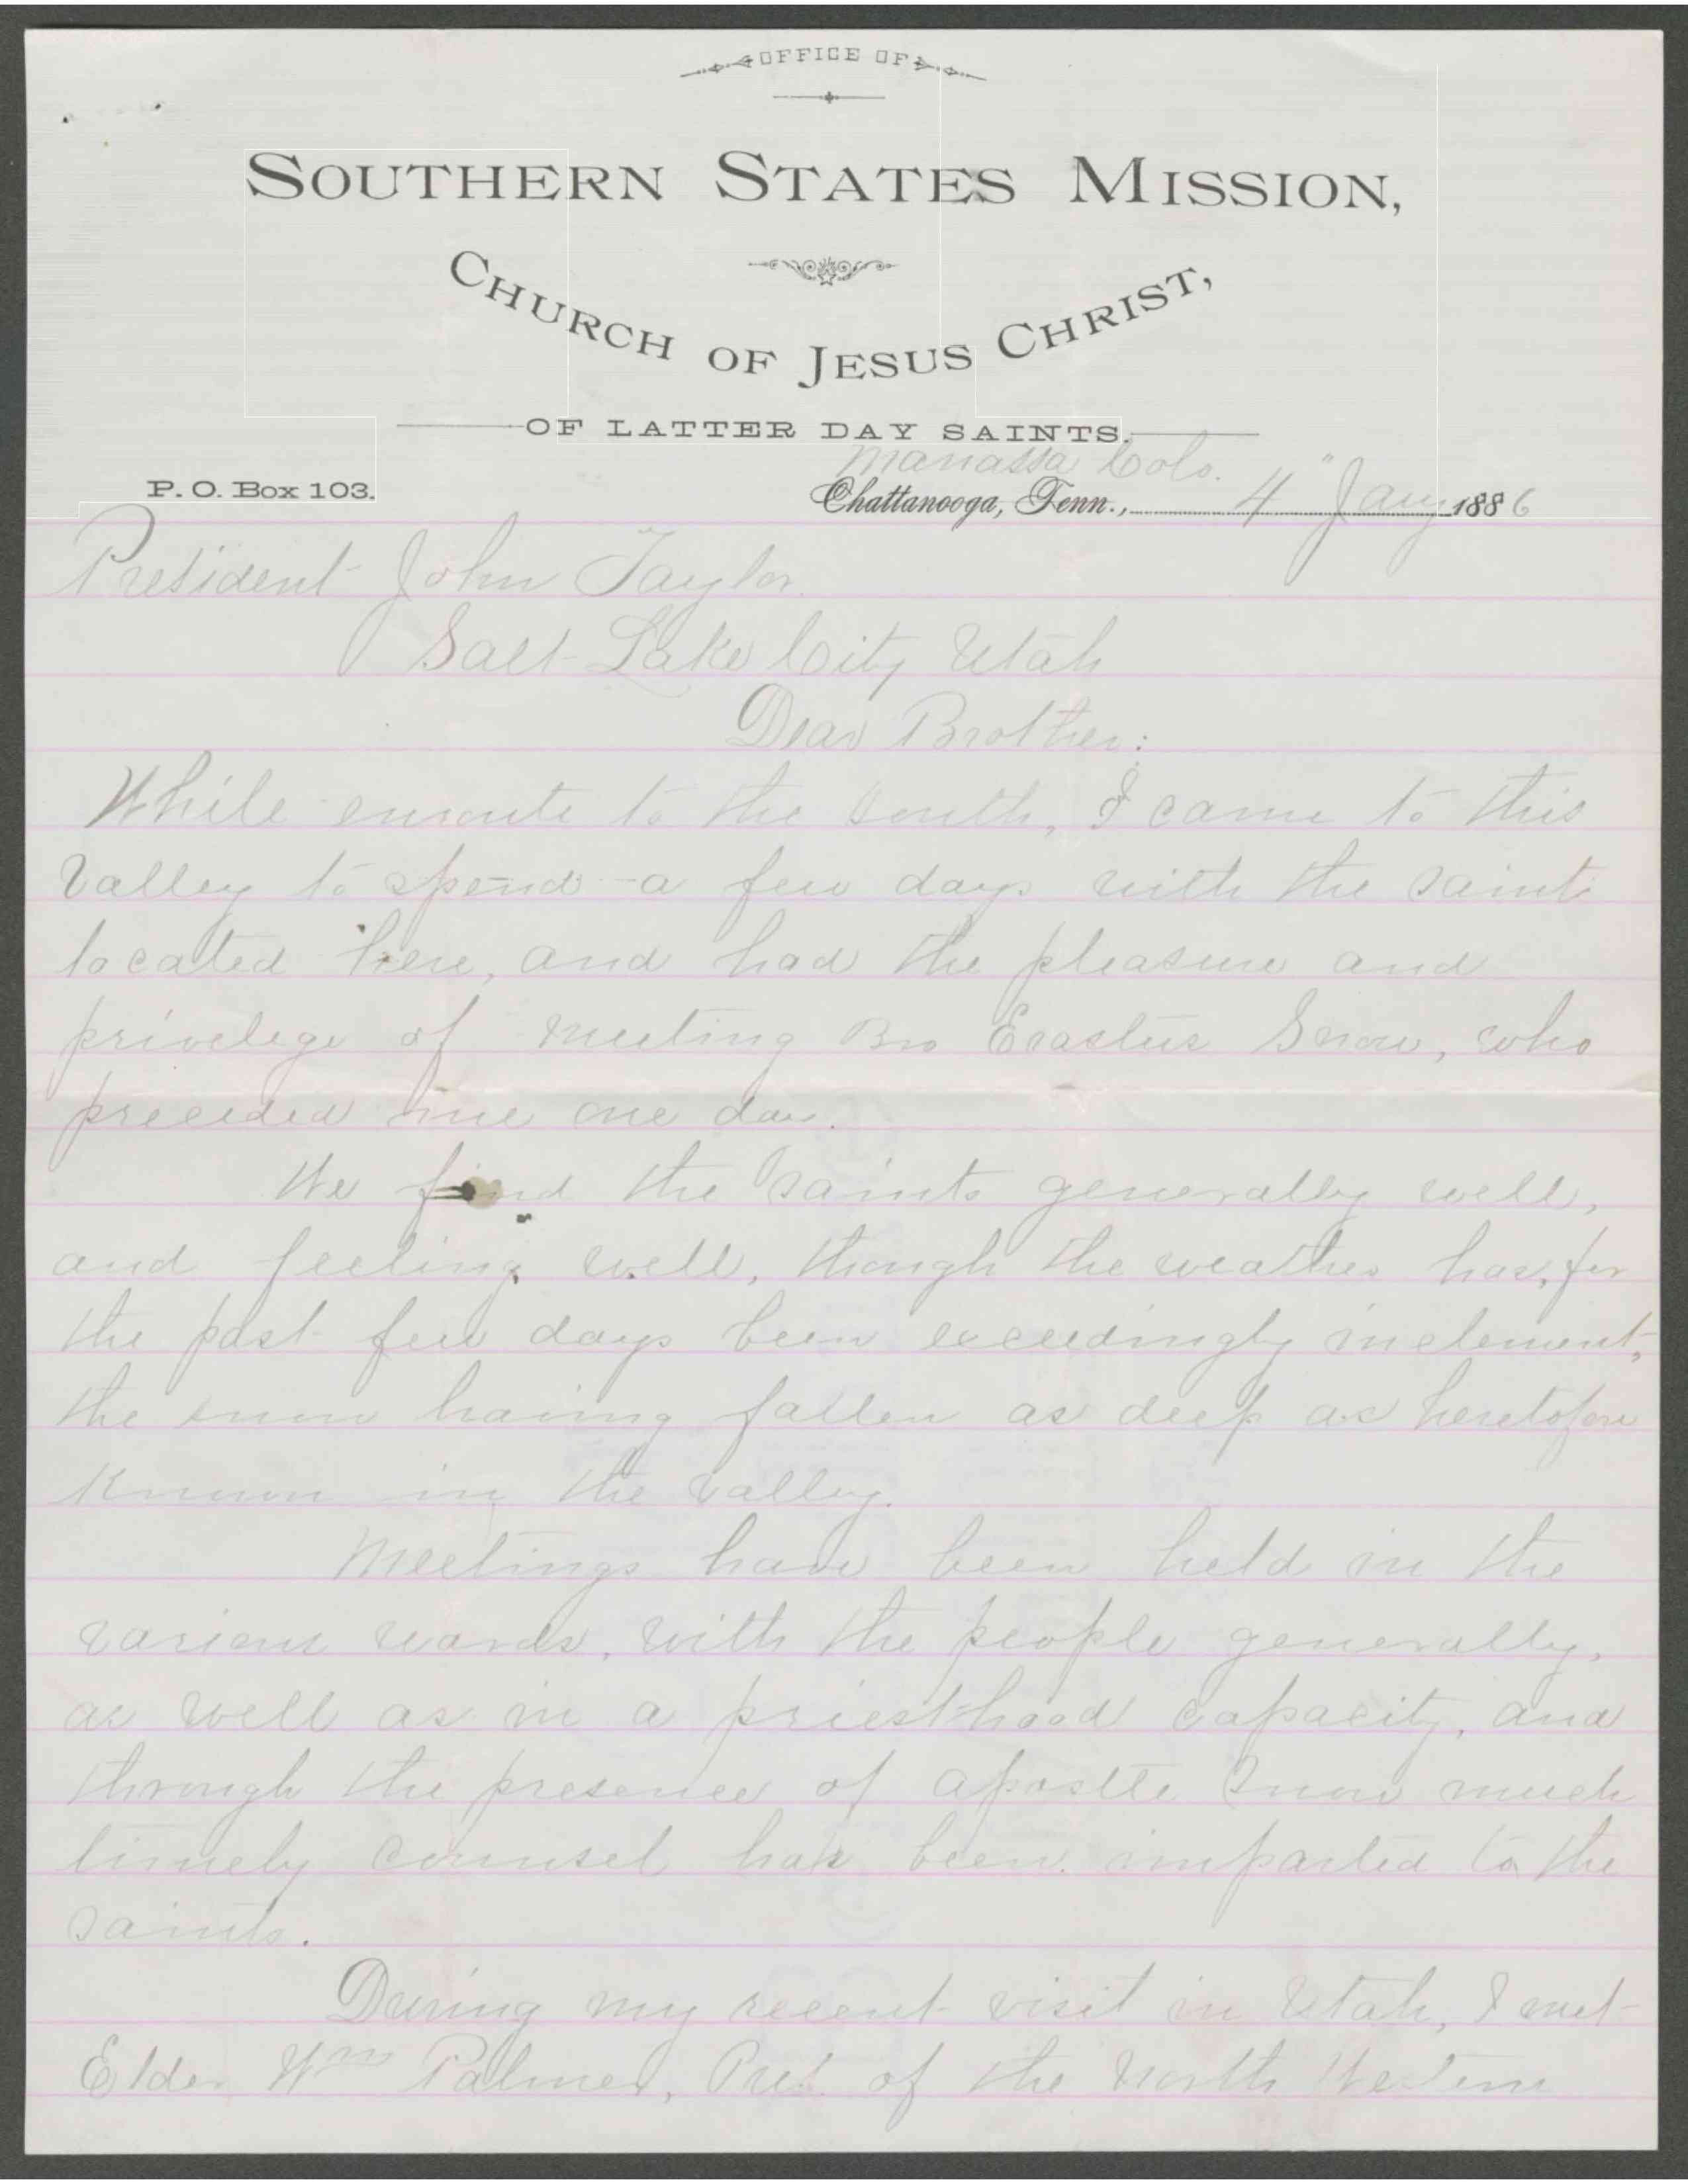 OFFICE OF
SOUTHERN STATES MISSION,
CHURCH OF JESUS CHRIST,
OF LATTER DAY SAINTS.
Manassa Colo.
P. O. Box 103.
Chattanooga, Tenn., 4" Jany 1886
President John Taylor.
Salt Lake City Utah
Dear Brother:
While enroute to the South, I came to this
Valley to spend a few days with the saints
located here, and had the pleasure and
privelege of meeting Bro Erastus Snow, who
preceded me one day.
We find the saints generally well,
and feeling well, though the weather has, for
the past few days been exceedingly inclement,
the snow having fallen as deep as heretofore
known in the valley.
Meetings have been held in the
various wards, with the people generally,
as well as in a priesthood capacity, and
through the presence of apostle Snow much
timely counsel has been imparted to the
saints.
During my recent visit in Utah, I met
Elder Wm Palmer, Pres. of the North Western